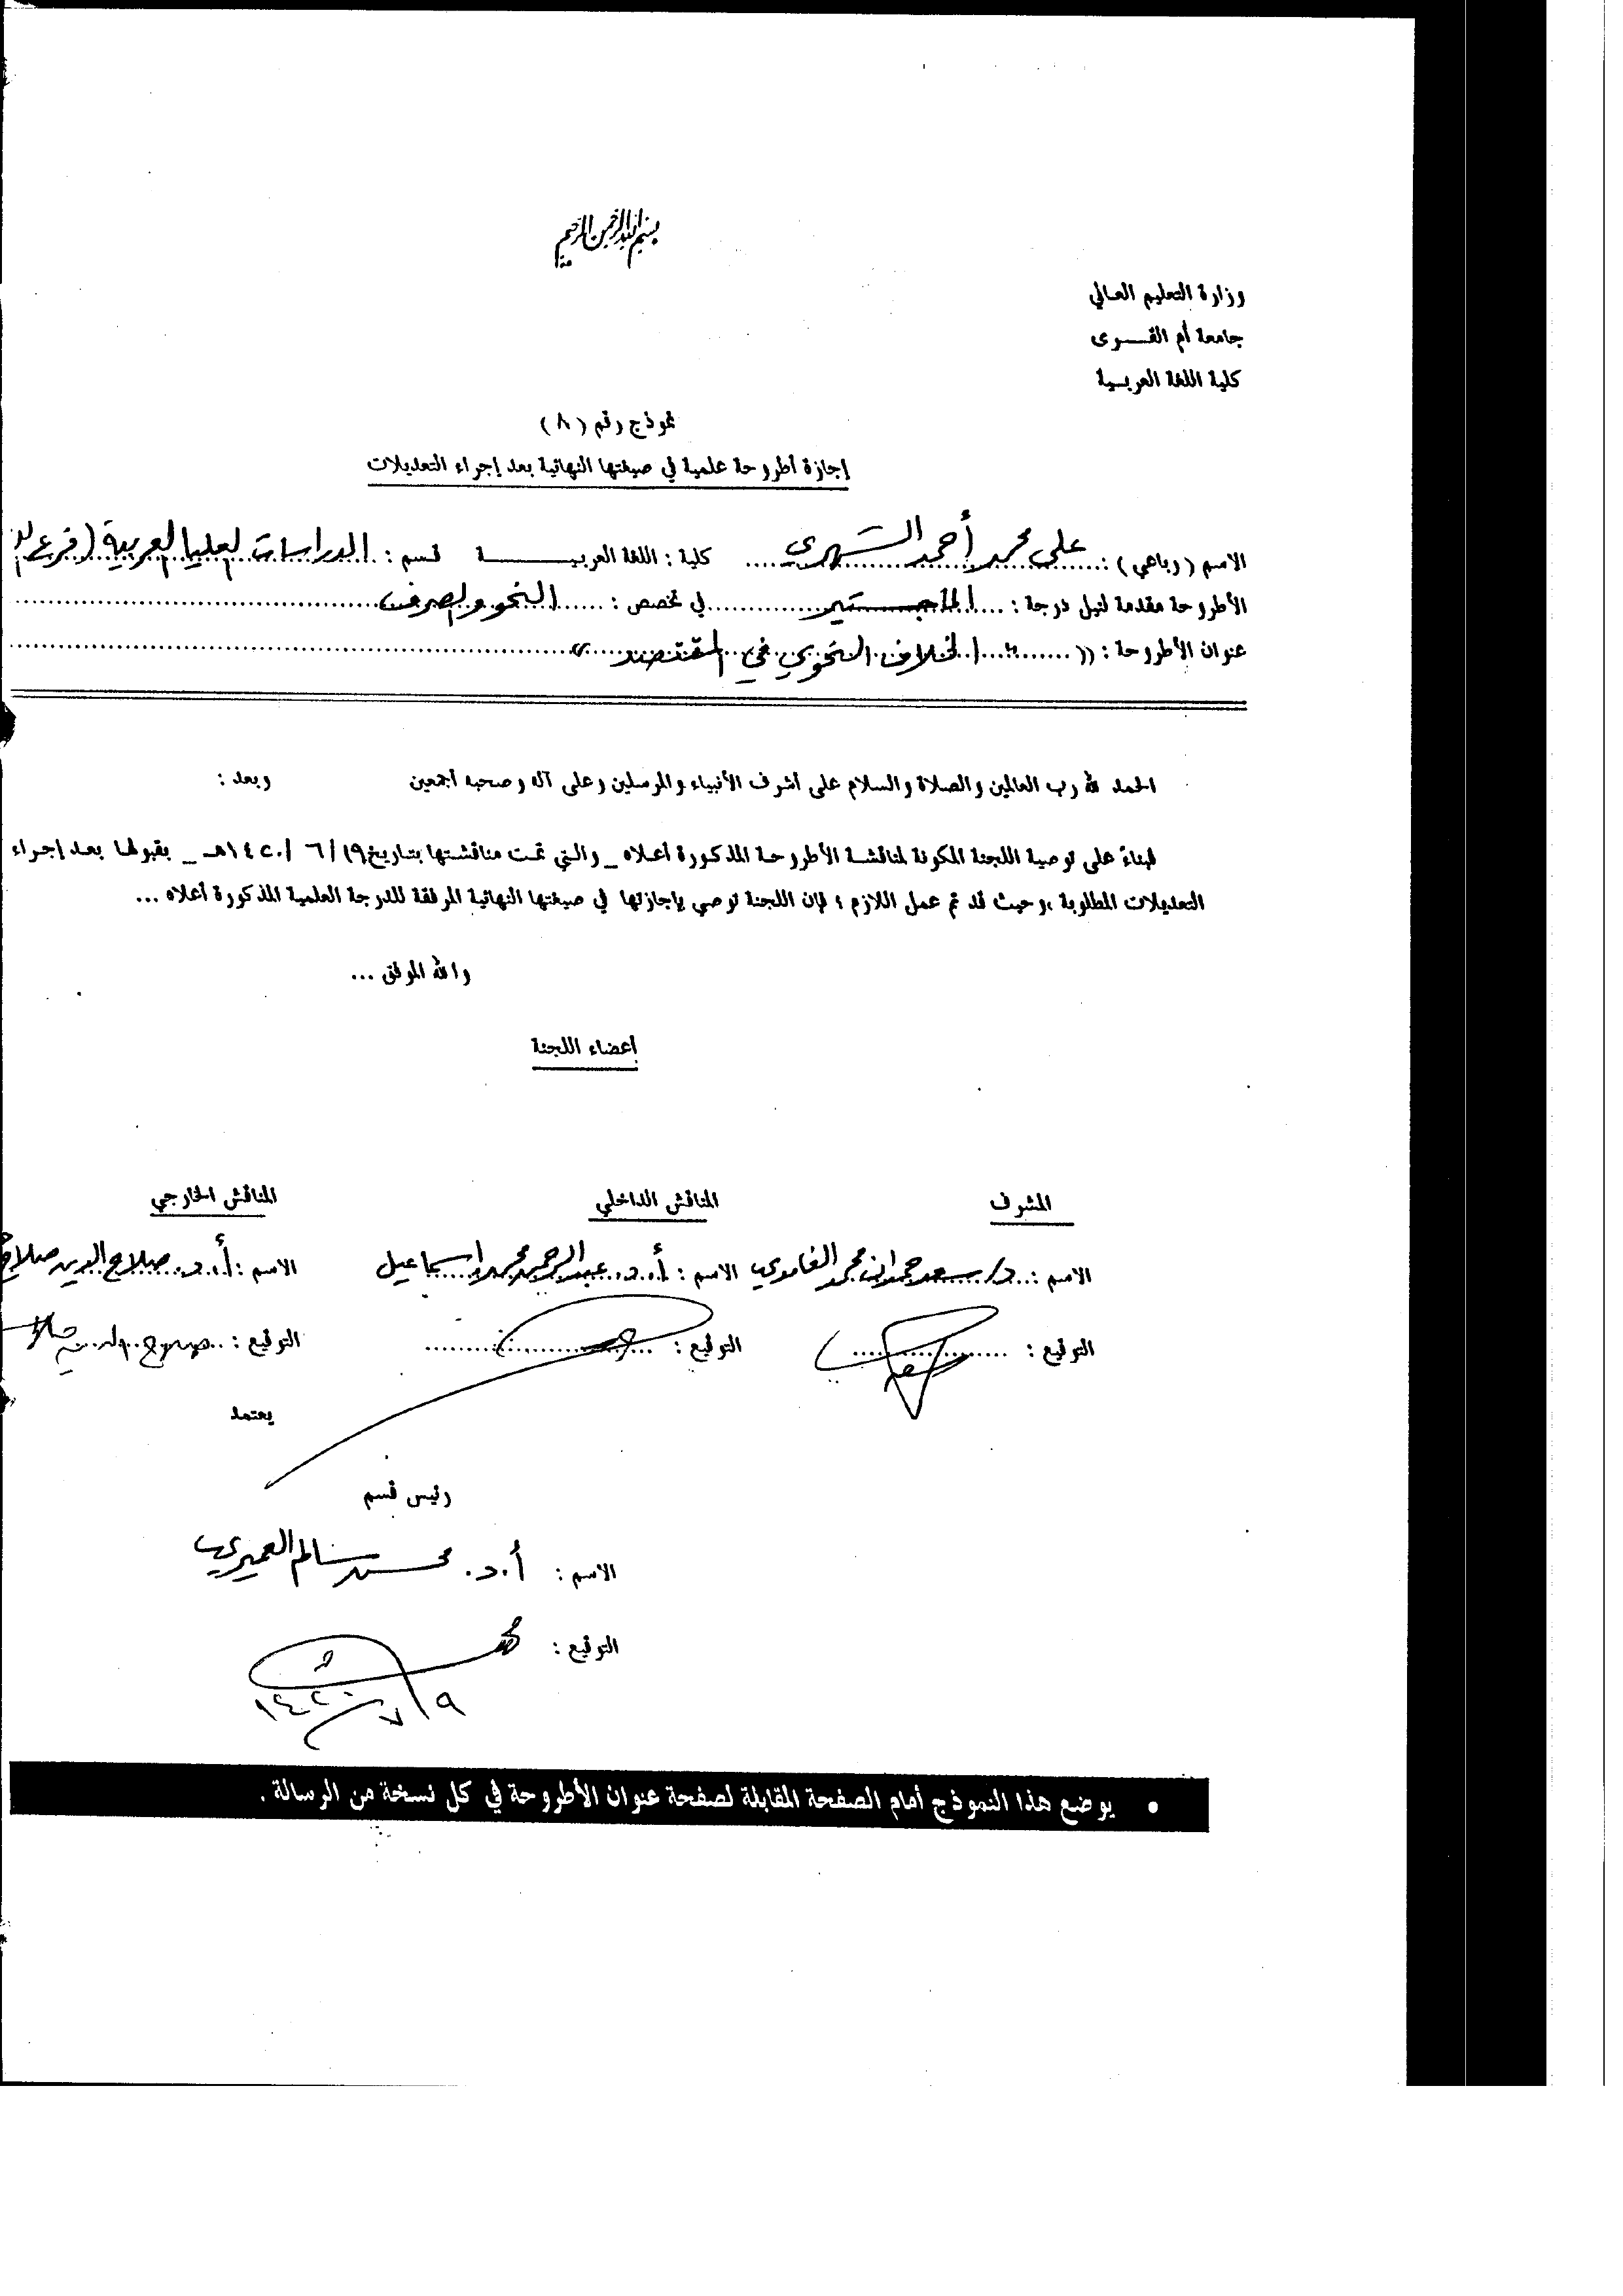 بسم الله الرحمن الرحيم
وزارة التعليم العالي
جامعة أم القــــرى
كلية اللغة العربــية
نموذج رقم ( ٨ )
إجازة أطروحة علمية في صيغتها النهائية بعد إجراء التعديلات
الاسم ( رباعي ) : علي محمد أحمد الشهري كلية : اللغة العربيـــــــة قسم : الدراسات العليا العربية ( فرع
الأطروحة مقدمة لنيل درجة : الماجستير في تخصص : النحو والصرف
عنوان الأطروحة : (( " الخلاف النحوي في المقتصد "
الحمد لله رب العالمين والصلاة والسلام على أشرف الأنبياء والمرسلين وعلى آله وصحبه أجمعين وبعد :
فبناءً على توصية اللجنة المكونة لمناقشة الأطروحة المذكورة أعلاه _ والتي تمت مناقشتها بتاريخ ١٩ / ٦ / ١٤٢٠هـ _ بقبولها بعد إجراء
التعديلات المطلوبة ، وحيث قد تم عمل اللازم ؛ فإن اللجنة توصي بإجازتها في صيغتها النهائية المرفقة للدرجة العلمية المذكورة أعلاه ...
والله الموفق ...
أعضاء اللجنة
المشرف المناقش الداخلي المناقش الخارجي
الاسم : د/ سعد حمدان محمد الغامدي الاسم : أ.د. عبد الرحمن محمد إسماعيل الاسم : أ.د. صلاح الدين صلاح
التوقيع : التوقيع : التوقيع : صلاح الدين صلاح
يعتمد
رئيس قسم
الاسم : أ.د. محمد سالم العميري
التوقيع :
١٩ / ٧ / ١٤٢٠
• يوضع هذا النموذج أمام الصفحة المقابلة لصفحة عنوان الأطروحة في كل نسخة من الرسالة .